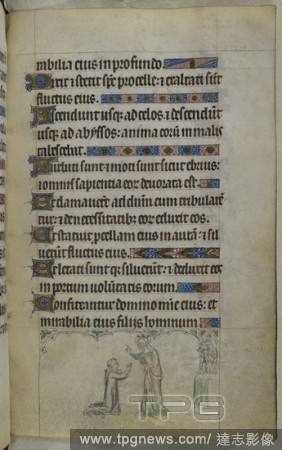 rabilia eius in profundo
Dixit ⁊ stetit sp̄c procelle: ⁊ exaltati sūt
fluctus eius.
Ascendunt usq; ad celos: ⁊ descendūt
usq; ad abyssos: anima eorū in malis
Turbati sunt ⁊ moti sunt sicut ebrius:
⁊ omnis sapientia eor deuorata est.
Et clamauerūt ad dūm cum tribularēt
tur: ⁊ de necessitatib; eor eduxit eos.
Et statuit pcellam eius in aurā: ⁊ sil
uerūt fluctus eius.
Et letati sunt q; siluerūt: ⁊ deduxit eos
in portum uoluntatis eorum.
Confiteantur domino mīe eius: et
mirabilia eius filiis hominum
TPG
www.tpgnews.com / 達志影像